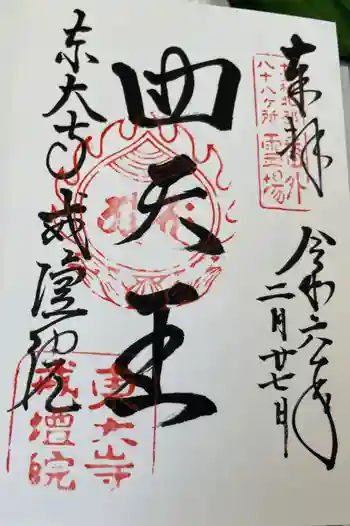 奉拝
八十八ヶ所
霊場
外
令和六年
二月廿七日
四天王
東大寺戒壇院
東大寺
戒壇院